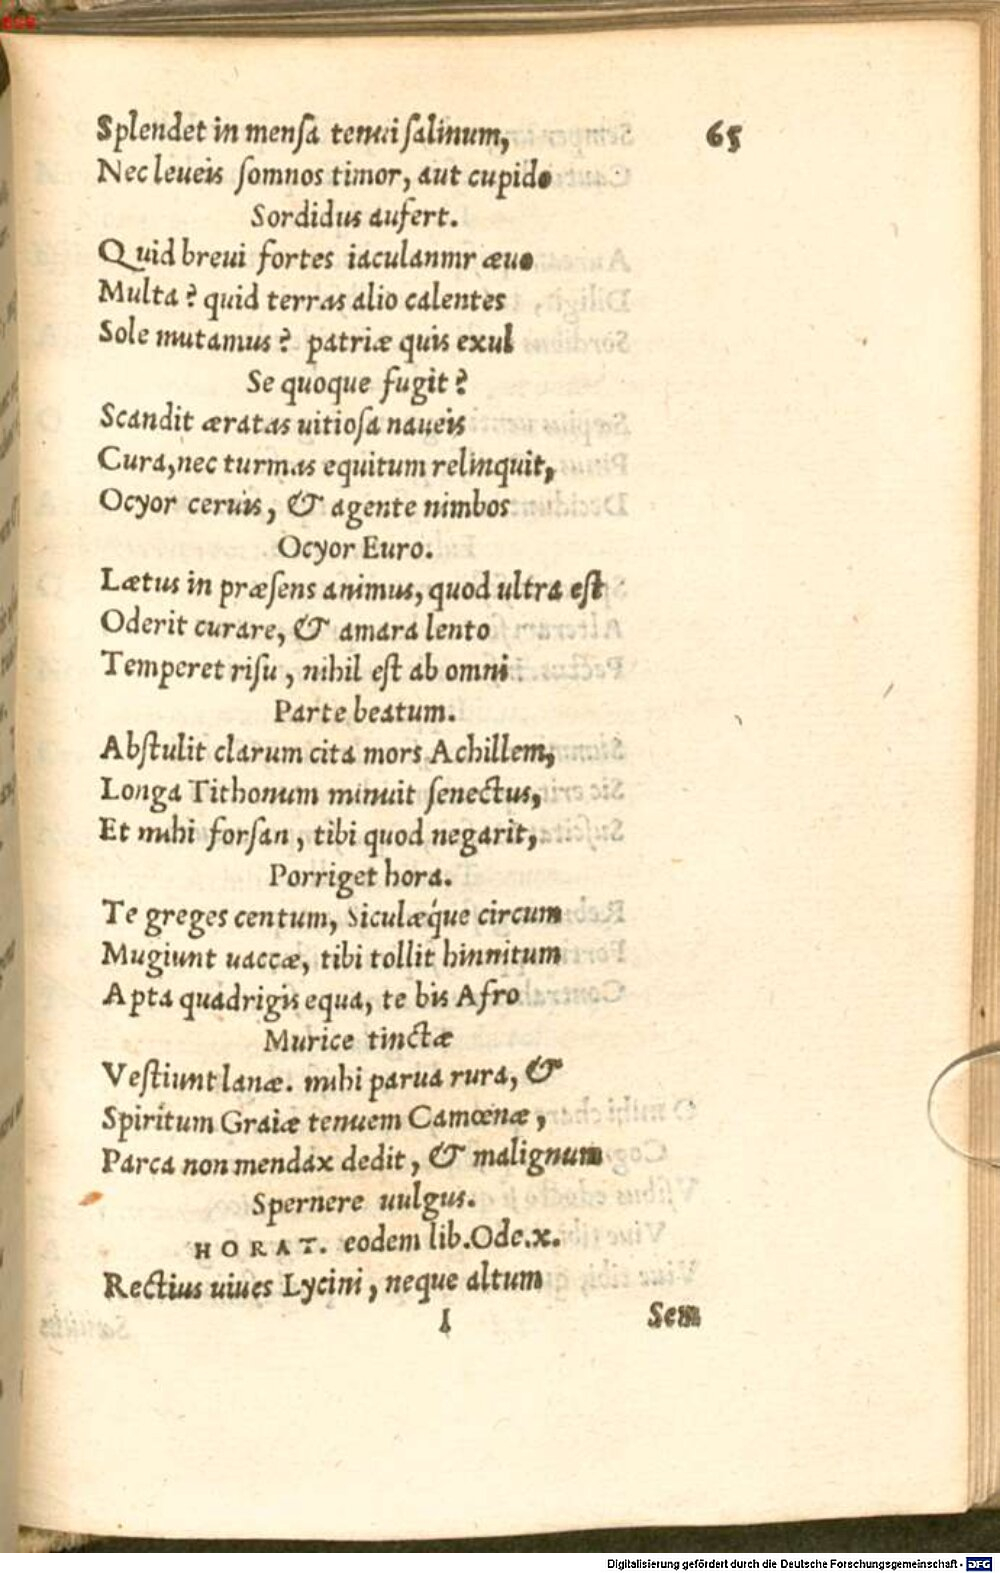 Splendet in mensa tenui salinum,
65
Nec leueis somnos timor, aut cupido
Sordidus aufert.
Quid breui fortes iaculamur æuo
Multa? quid terras alio calentes
Sole mutamus? patriæ quis exul
Se quoque fugit?
Scandit æratas uitiosa naueis
Cura, nec turmas equitum relinquit,
Ocyor ceruis, & agente nimbos
Ocyor Euro.
Lætus in præsens animus, quod ultra est
Oderit curare, & amara lento
Temperet risu, nihil est ab omni
Parte beatum.
Abstulit clarum cita mors Achillem,
Longa Tithonum minuit senectus,
Et mihi forsan, tibi quod negarit,
Porriget hora.
Te greges centum, Siculæq́ue circum
Mugiunt uaccæ, tibi tollit hinnitum
Apta quadrigis equa, te bis Afro
Murice tinctæ
Vestiunt lanæ. mihi parua rura, &
Spiritum Graiæ tenuem Camœnæ,
Parca non mendax dedit, & malignum
Spernere uulgus.
HORAT. eodem lib. Ode. x.
Rectius uiues Lycini, neque altum
I
Sem
Digitalisierung gefördert durch die Deutsche Forschungsgemeinschaft - DFG